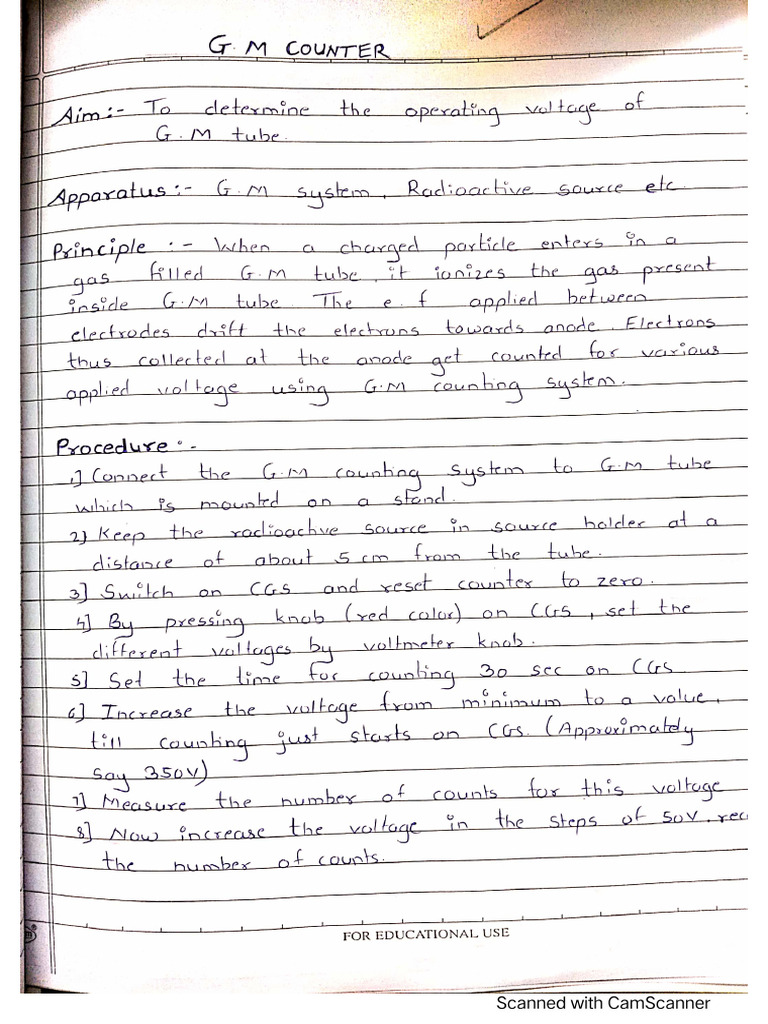 G.M COUNTER
Aim:- To determine the operating voltage of
G.M tube.
Apparatus:- G.M system, Radioactive source etc.
Principle :- When a charged particle enters in a
gas filled G.M tube, it ionizes the gas present
inside G.M tube. The e.f applied between
electrodes drift the electrons towards anode. Electrons
thus collected at the anode get counted for various
applied voltage using G.M counting system.
Procedure :-
1] Connect the G.M counting system to G.M tube
which is mounted on a stand.
2) Keep the radioactive source in source holder at a
distance of about 5 cm from the tube.
3] Switch on CGS and reset counter to zero.
4] By pressing knob (red color) on CGS, set the
different voltages by voltmeter knob.
5] Set the time for counting 30 sec on CGS
6] Increase the voltage from minimum to a value,
till counting just starts on CGS. (Approximately
say 350V)
7] Measure the number of counts for this voltage
8] Now increase the voltage in the steps of 50V. rec
the number of counts.
FOR EDUCATIONAL USE
Scanned with CamScanner